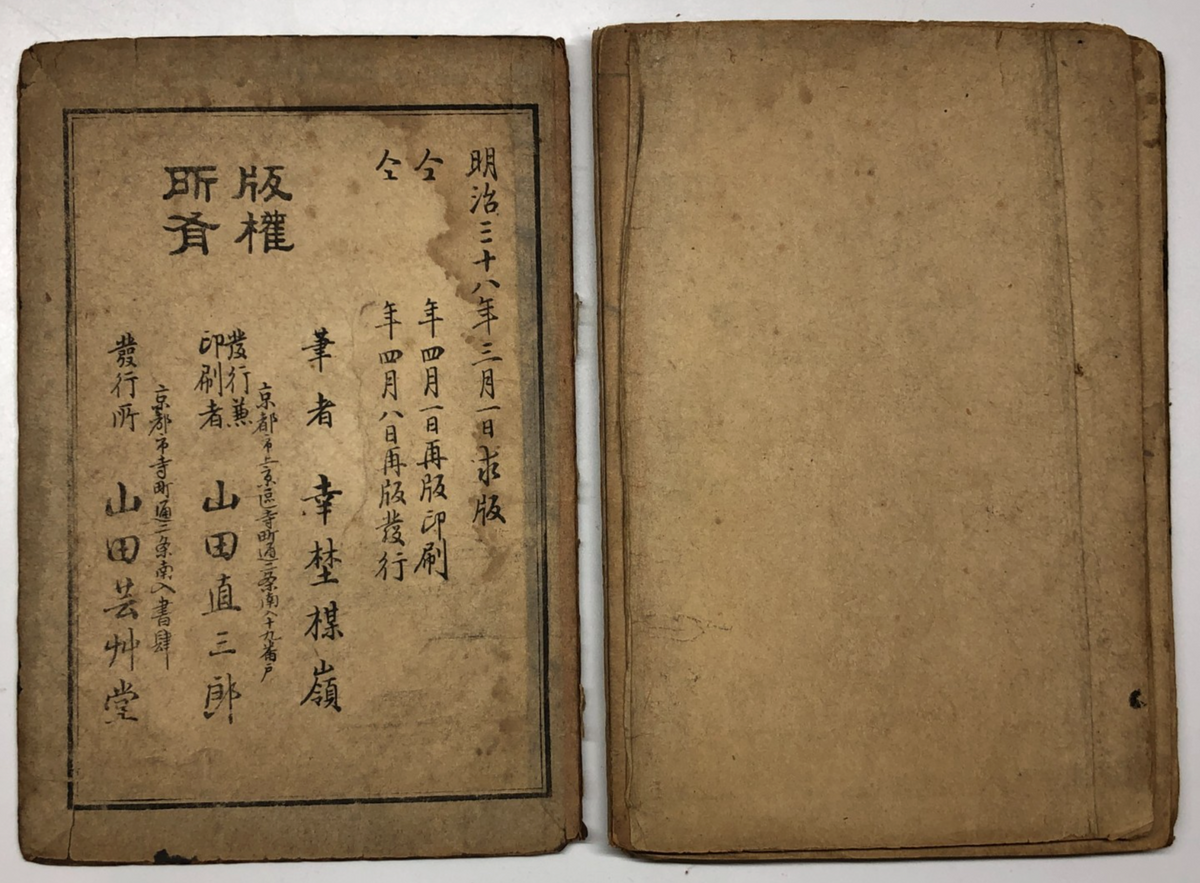 明治三十八年三月一日求版
仝年四月一日再版印刷
仝年四月八日再版發行
筆者 幸埜楳嶺
京都市上京區寺町通二条南入十九番戸
發行兼
印刷者 山田直三郎
京都市寺町通二条南入書肆
發行所 山田芸艸堂
版權
所有